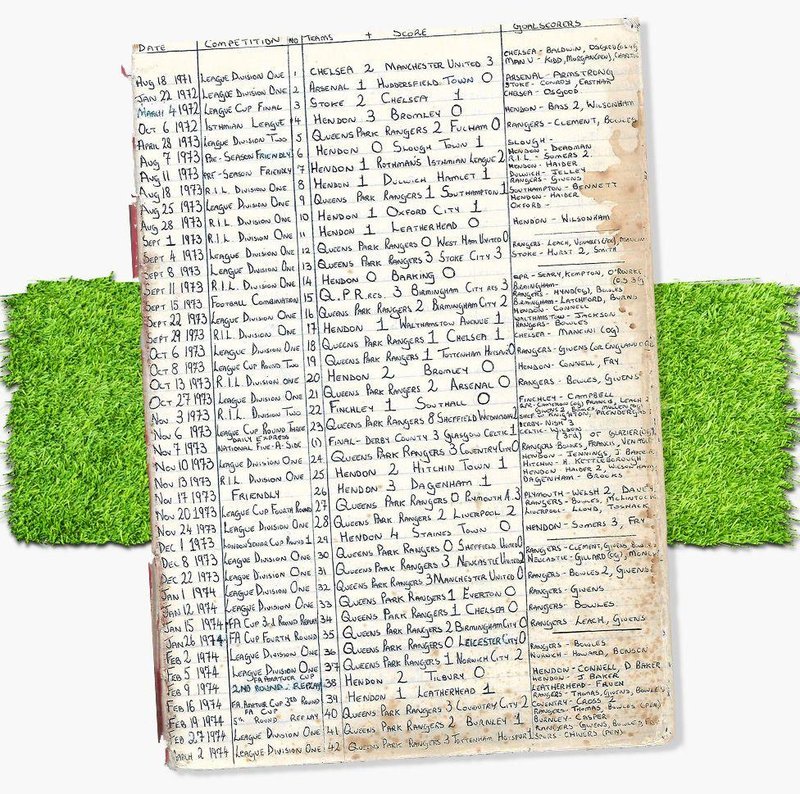 DATE COMPETITION NO TEAMS + SCORE GOALSCORERS
Aug 18 1971 League Division One 1 Chelsea 2 Manchester United 3 Chelsea - Baldwin, Osgood
Man U - Kidd, Morgan (pen), Charlton
Jan 22 1972 League Division One 2 Arsenal 1 Huddersfield Town 0 Arsenal - Armstrong
March 4 1972 League Cup Final 3 Stoke 2 Chelsea 1 Stoke - Conroy, Eastham
Chelsea - Osgood
Oct 6 1972 Isthmian League 4 Hendon 3 Bromley 0 Hendon - Bass 2, Wilsonham
April 28 1973 League Division Two 5 Queens Park Rangers 2 Fulham 0 Rangers - Clement, Bowles
Aug 7 1973 Pre-Season Friendly 6 Hendon 0 Slough Town 1 Slough -
Aug 11 1973 Pre-Season Friendly 7 Hendon 1 Rothmans Isthmian League 2 Hendon - Deadman
R.I.L. - Somers 2
Aug 18 1973 R.I.L. Division One 8 Hendon 1 Dulwich Hamlet 1 Hendon - Haider
Dulwich - Jelley
Aug 25 1973 League Division One 9 Queens Park Rangers 1 Southampton 1 Rangers - Givens
Southampton - Bennett
Aug 28 1973 R.I.L. Division One 10 Hendon 1 Oxford City 1 Hendon - Haider
Oxford -
Sept 1 1973 R.I.L. Division One 11 Hendon 1 Leatherhead 0 Hendon - Wilsonham
Sept 4 1973 League Division One 12 Queens Park Rangers 0 West Ham United 0
Sept 8 1973 League Division One 13 Queens Park Rangers 3 Stoke City 3 Rangers - Leach, Venables (pen), Mancini
Stoke - Hurst 2, Smith
Sept 11 1973 R.I.L. Division One 14 Hendon 0 Barking 0
Sept 15 1973 Football Combination 15 Q.P.R. res. 3 Birmingham City res 3 QPR - Seary, Kempton, O'Rourke
Birmingham -
Sept 22 1973 League Division One 16 Queens Park Rangers 2 Birmingham City 2 Rangers - Hynd (og), Bowles
Birmingham - Latchford, Burns
Sept 29 1973 R.I.L. Division One 17 Hendon 1 Walthamstow Avenue 1 Hendon - Connell
Walthamstow - Jackson
Oct 6 1973 League Division One 18 Queens Park Rangers 1 Chelsea 1 Rangers - Bowles
Chelsea - Mancini (og)
Oct 8 1973 League Cup Round Two 19 Queens Park Rangers 1 Tottenham Hotspur 0 Rangers - Givens (or England (og))
Oct 13 1973 R.I.L. Division One 20 Hendon 2 Bromley 0 Hendon - Connell, Fry
Oct 27 1973 League Division One 21 Queens Park Rangers 2 Arsenal 0 Rangers - Bowles, Givens
Nov 3 1973 R.I.L. Division Two 22 Finchley 1 Southall 0 Finchley - Campbell
Nov 6 1973 League Cup Round Three 23 Queens Park Rangers 8 Sheffield Wednesday QPR - Cameron (og), Francis, Leach 2
Givens 2, Bowles, Mullen (og)
Nov 7 1973 Daily Express National Five-A-Side (1) Final - Derby County 3 Glasgow Celtic 1 Derby - Nish 3
Celtic - Wilson
Nov 10 1973 League Division One 24 Queens Park Rangers 3 Coventry City 0 Rangers Bowles, Francis, Venables
Nov 13 1973 R.I.L. Division One 25 Hendon 2 Hitchin Town 1 Hendon - Jennings, J Baker
Hitchin - K. Kettleborough
Nov 17 1973 Friendly 26 Hendon 3 Dagenham 1 Hendon - Haider 2, Wilsonham
Dagenham - Brooks
Nov 20 1973 League Cup Fourth Round 27 Queens Park Rangers 0 Plymouth A. 3 Plymouth - Welsh 2, Davey
Nov 24 1973 League Division One 28 Queens Park Rangers 2 Liverpool 2 Rangers - Bowles, McLintock
Liverpool - Lloyd, Toshack
Dec 1 1973 London Senior Cup Round 1 29 Hendon 4 Staines Town 0 Hendon - Somers 3, Fry
Dec 8 1973 League Division One 30 Queens Park Rangers 0 Sheffield United 0
Dec 22 1973 League Division One 31 Queens Park Rangers 3 Newcastle United 2 Rangers - Clement, Givens, Bowles
Newcastle - Gillard (og)
Jan 1 1974 League Division One 32 Queens Park Rangers 3 Manchester United 0 Rangers - Bowles 2, Givens
Jan 12 1974 League Division One 33 Queens Park Rangers 1 Everton 0 Rangers - Givens
Jan 15 1974 FA Cup 3rd Round Replay 34 Queens Park Rangers 1 Chelsea 0 Rangers - Bowles
Jan 26 1974 FA Cup Fourth Round 35 Queens Park Rangers 2 Birmingham City 0 Rangers - Leach, Givens
Feb 2 1974 League Division One 36 Queens Park Rangers 0 Leicester City 0
Feb 5 1974 League Division One 37 Queens Park Rangers 1 Norwich City 2 Rangers - Bowles
Norwich - Howard, Benson
Feb 9 1974 FA Amatuer Cup 2nd Round - Replay 38 Hendon 2 Tilbury 0 Hendon - Connell, D Baker
Feb 16 1974 FA Amatuer Cup 3rd Round 39 Hendon 1 Leatherhead 1 Hendon - J Baker
Leatherhead - Fruen
Feb 19 1974 FA Cup 5th Round Replay 40 Queens Park Rangers 3 Coventry City 2 Rangers - Thomas, Givens, Bowles
Coventry - Cross 2
Feb 27 1974 League Division One 41 Queens Park Rangers 2 Burnley 1 Rangers - Thomas, Bowles (pen)
Burnley - Casper
March 2 1974 League Division One 42 Queens Park Rangers 3 Tottenham Hotspur 1 Rangers Givens, Bowles
Spurs - Chivers (pen)